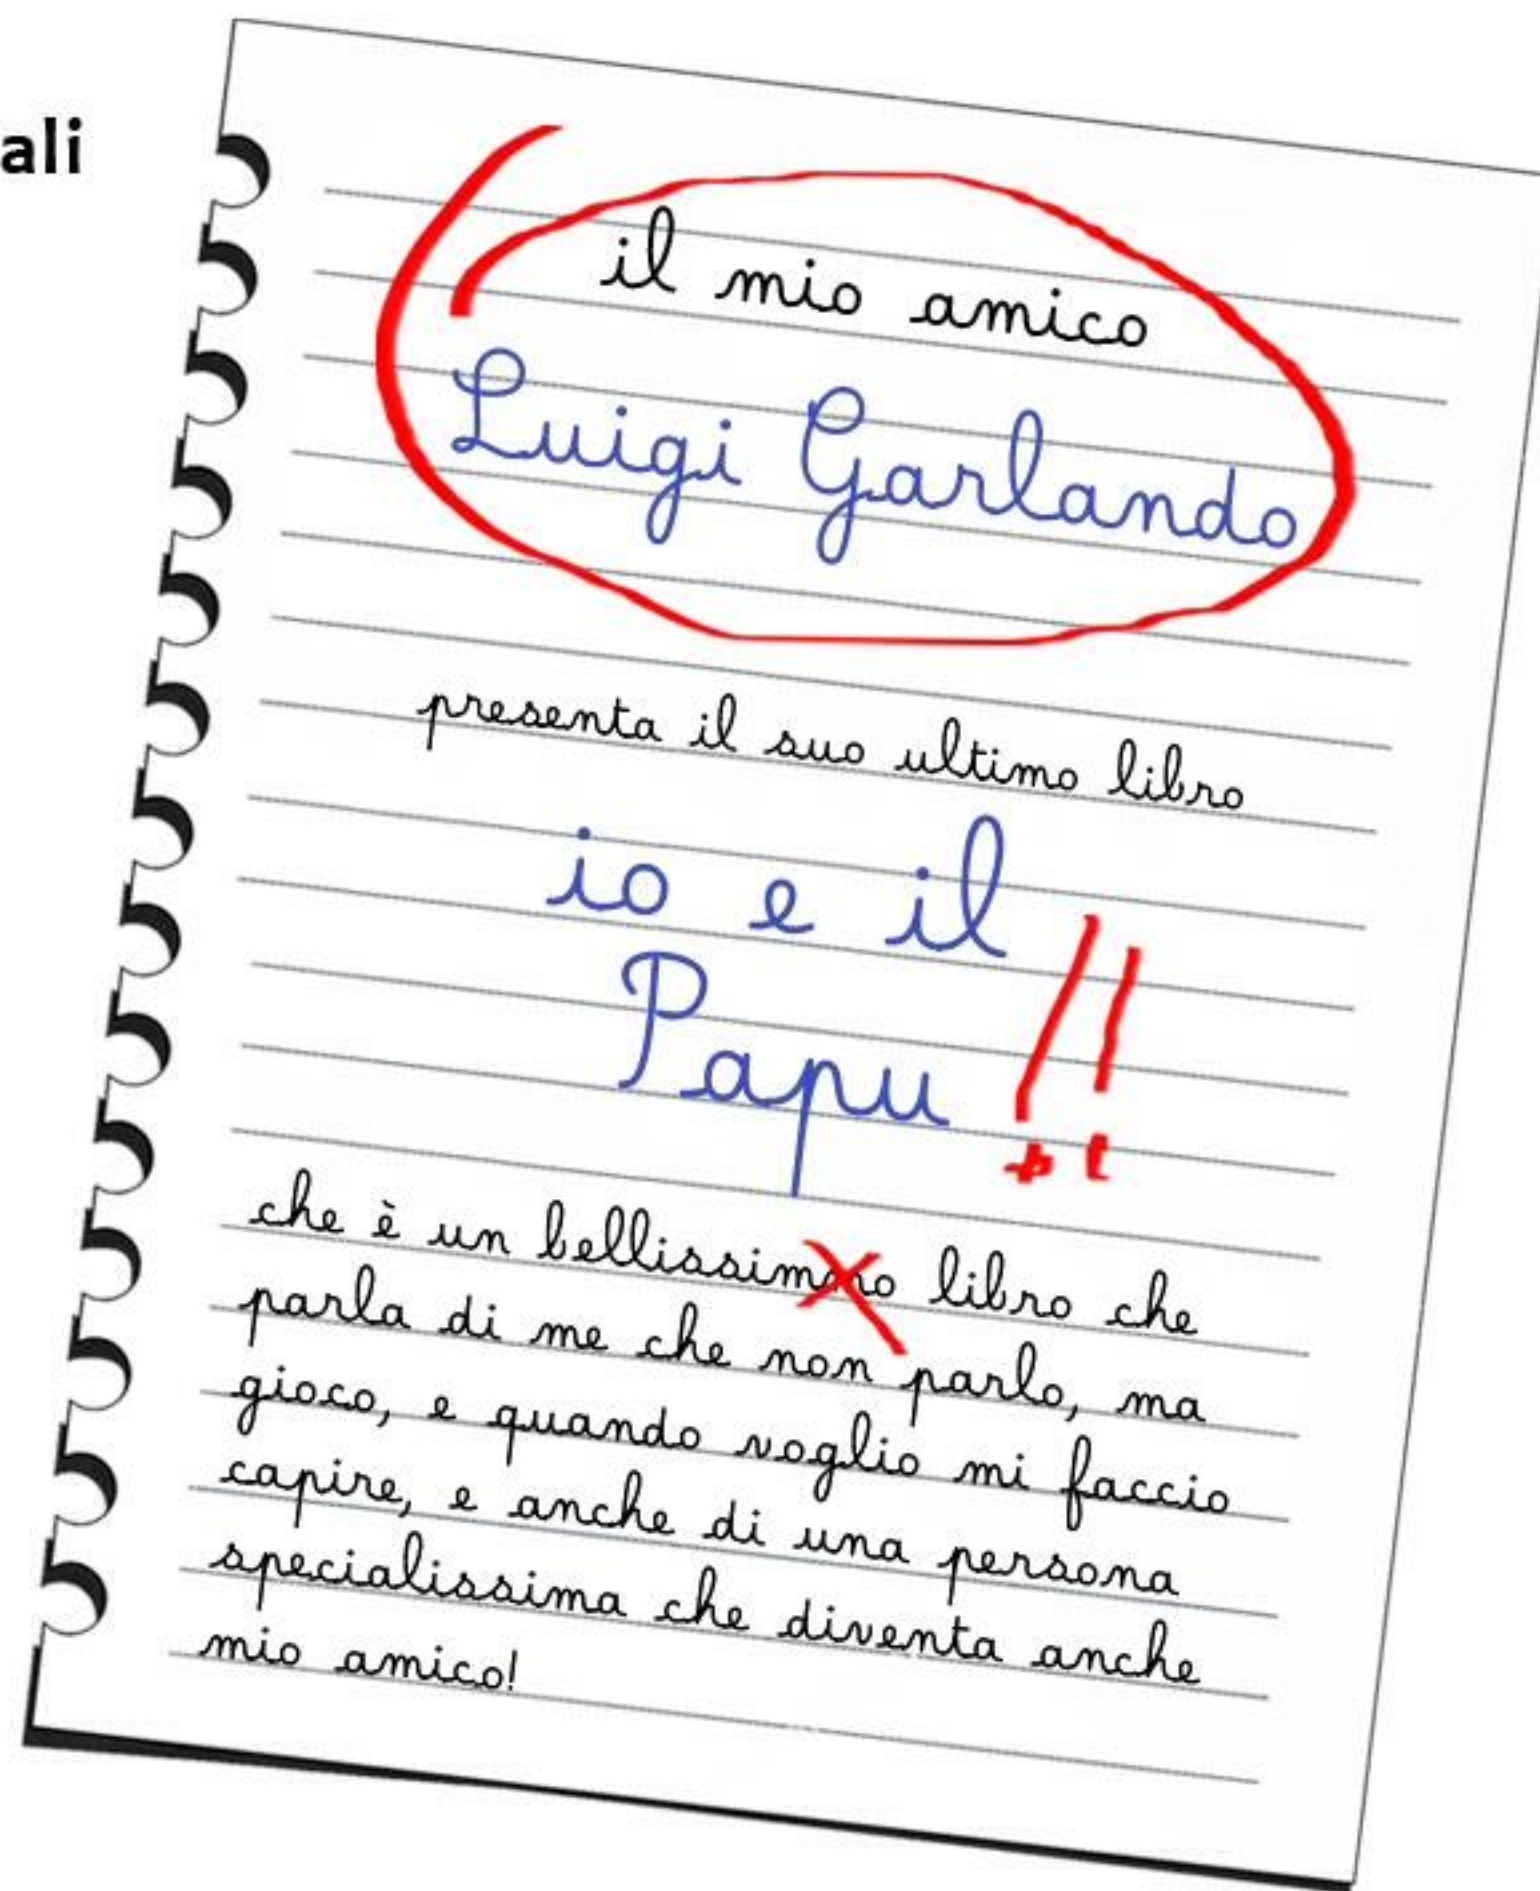 ali
il mio amico
Luigi Garlando
presenta il suo ultimo libro
io e il
Papu!!
che è un bellissimmo libro che
parla di me che non parlo, ma
gioco, e quando voglio mi faccio
capire, e anche di una persona
specialissima che diventa anche
mio amico!